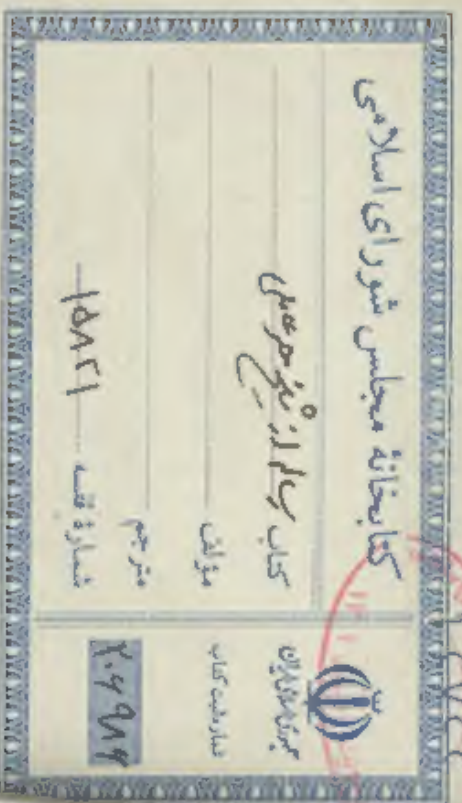 کتابخانه مجلس شورای اسلامی
کتاب
مؤلف
مترجم
شماره قفسه ۱۵۸۲۱
جمهوری اسلامی ایران
شماره ثبت کتاب
۲۰۶۹۸۴